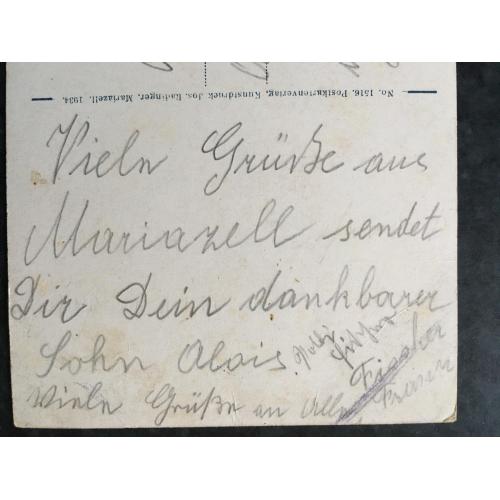 No. 1516. Postkartenverlag, Kunstdruck Jos. Radinger, Mariazell. 1934.
Vieln Grüße aus
Mariazell sendet
Dir Dein dankbarer
Sohn Alois
Fischer
Viele Grüße an Alle, Franz